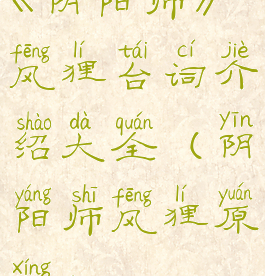 《阴阳师》
fēng lí tái cí jiè
风狸台词介
shào dà quán yīn
绍大全（阴
yáng shī fēng lí yuán
阳师风狸原
xíng